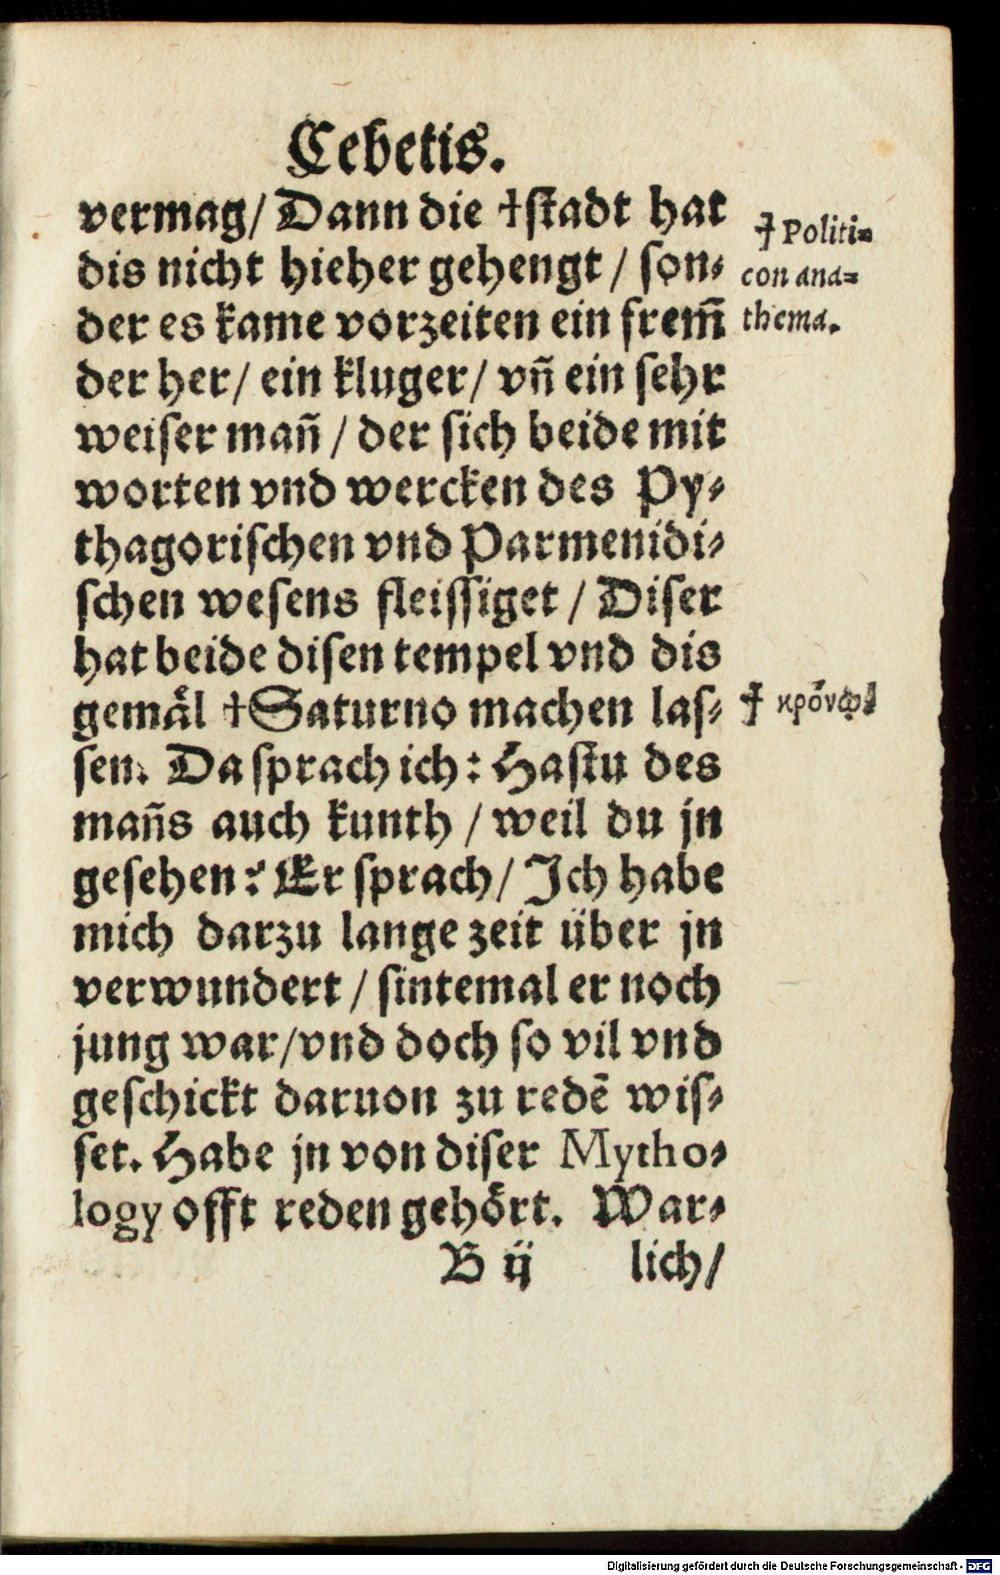 Cebetis.
vermag/ Dann die †ſtadt hat
dis nicht hieher gehengt / ſon⸗
der es kame vorzeiten ein frem̃
der her/ ein kluger/ vñ ein ſehr
weiſer mañ / der ſich beide mit
worten vnd wercken des Py⸗
thagoriſchen vnd Parmenidi⸗
ſchen weſens fleiſſiget / Diſer
hat beide diſen tempel vnd dis
gemaͤl †Saturno machen laſ⸗
ſen. Da ſprach ich: Haſtu des
mañs auch kunth / weil du jn
geſehen? Er ſprach/ Ich habe
mich darzu lange zeit uͤber jn
verwundert / ſintemal er noch
jung war/vnd doch ſo vil vnd
geſchickt daruon zu redẽ wiſ⸗
ſet. Habe jn von diſer Mytho⸗
logy offt reden gehoͤrt. War⸗
B ij lich/
† Politi⸗
con ana⸗
thema.
† κρόνῳ
Digitalisierung gefördert durch die Deutsche Forschungsgemeinschaft - DFG